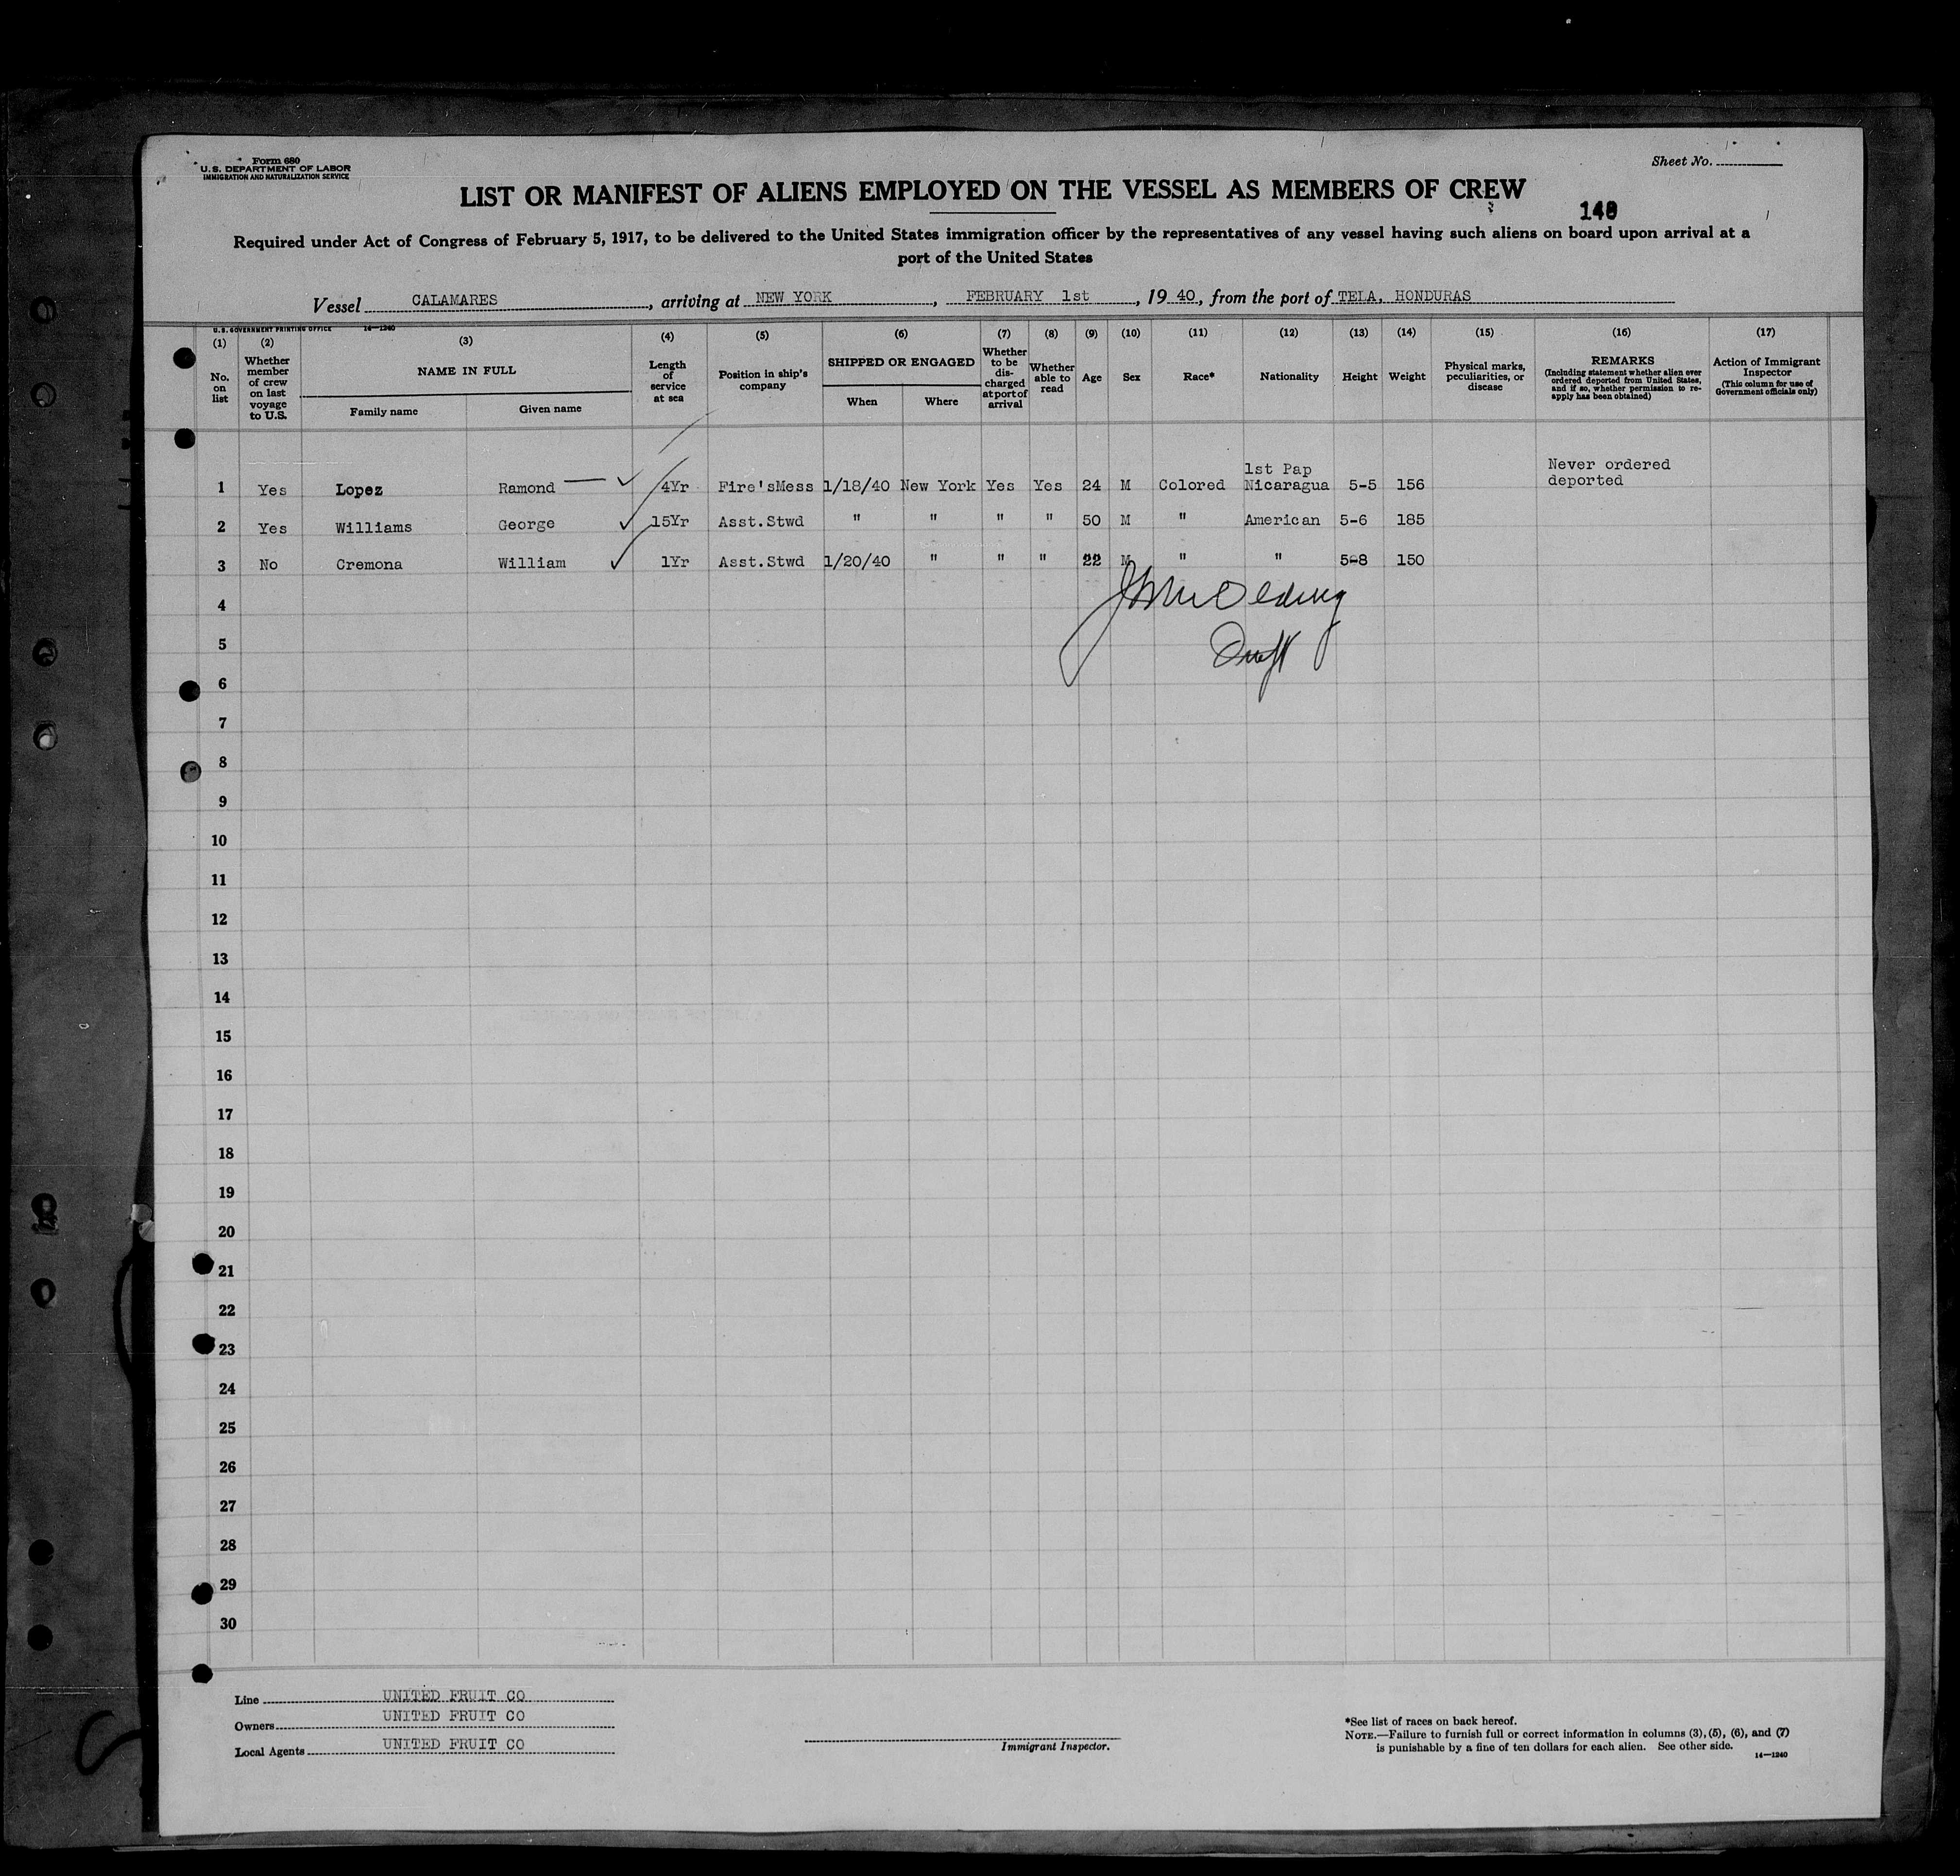 Form 680
U.S. DEPARTMENT OF LABOR
IMMIGRATION AND NATURALIZATION SERVICE
Sheet No.
LIST OR MANIFEST OF ALIENS EMPLOYED ON THE VESSEL AS MEMBERS OF CREW
140
Required under Act of Congress of February 5, 1917, to be delivered to the United States immigration officer by the representatives of any vessel having such aliens on board upon arrival at a
port of the United States
Vessel CALAMARES, arriving at NEW YORK, FEBRUARY 1st, 19 40, from the port of TELA, HONDURAS
U.S. GOVERNMENT PRINTING OFFICE 14—1240
(1) No. on list
(2) Whether member of crew on last voyage to U.S.
(3) NAME IN FULL
Family name Given name
(4) Length of service at sea
(5) Position in ship's company
(6) SHIPPED OR ENGAGED
When Where
(7) Whether to be discharged at port of arrival
(8) Whether able to read
(9) Age
(10) Sex
(11) Race*
(12) Nationality
(13) Height
(14) Weight
(15) Physical marks, peculiarities, or disease
(16) REMARKS (Including statement whether alien ever ordered deported from United States, and if so, whether permission to reapply has been obtained)
(17) Action of Immigrant Inspector (This column for use of Government officials only)
1 Yes Lopez Ramond 4Yr Fire'sMess 1/18/40 New York Yes Yes 24 M Colored 1st Pap Nicaragua 5-5 156 Never ordered deported
2 Yes Williams George 15Yr Asst.Stwd " " " " 50 M " American 5-6 185
3 No Cremona William 1Yr Asst.Stwd 1/20/40 " " " 22 M " " 5-8 150
4
5
6
7
8
9
10
11
12
13
14
15
16
17
18
19
20
21
22
23
24
25
26
27
28
29
30
Line UNITED FRUIT CO
Owners UNITED FRUIT CO
Local Agents UNITED FRUIT CO
Immigrant Inspector.
*See list of races on back hereof.
NOTE.—Failure to furnish full or correct information in columns (3), (5), (6), and (7)
is punishable by a fine of ten dollars for each alien. See other side.
14—1240